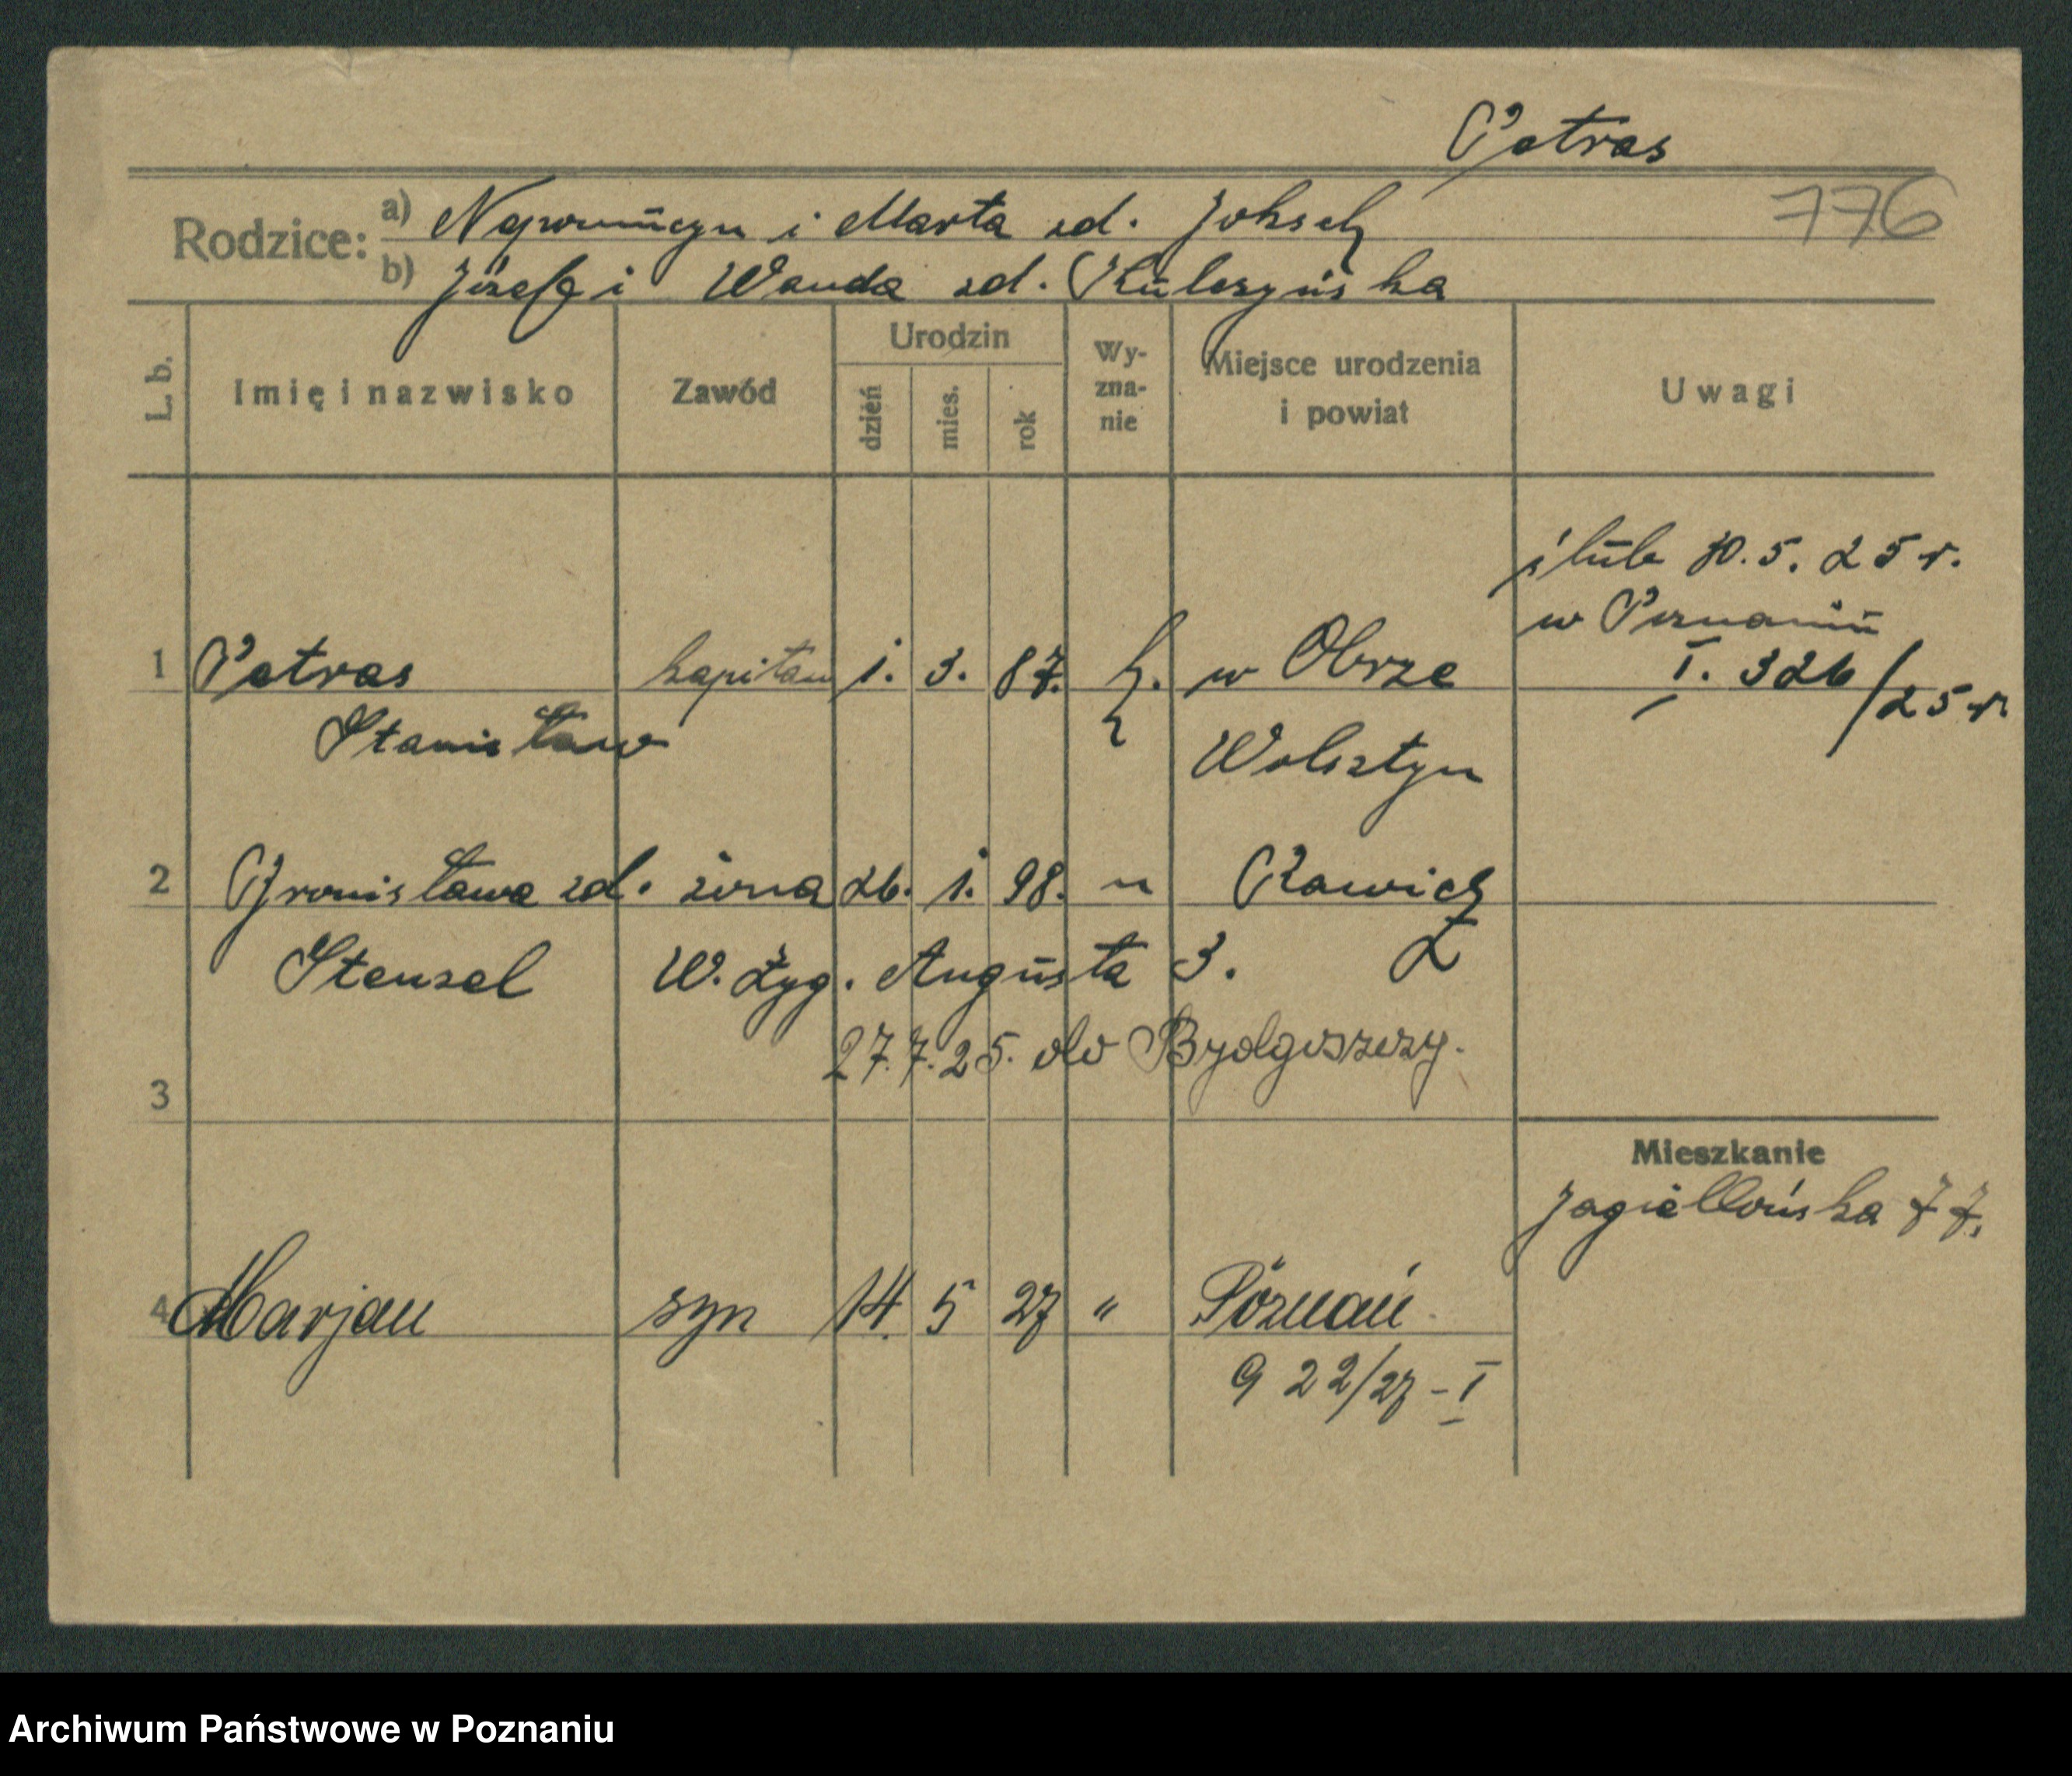 Petras
776
Rodzice: a) Nepomucyn i Marta zd. Joksch
b) Józef i Wanda zd. Kuleszyńska
L. b.
Imię i nazwisko
Zawód
Urodzin
dzień
mies.
rok
Wy-
zna-
nie
Miejsce urodzenia
i powiat
Uwagi
ślub 30.5.25 r.
w Poznaniu
I. 326/25 r.
1 Petras kapitan 1. 3. 87. k. w Obrze
Stanisław Wolsztyn
2 Bronisława zd. żona 26. 1. 98. " Rawicz
Stenzel W. Zyg. Augusta 3. Z
27.7.25. do Bydgoszczy.
3
Mieszkanie
Jagiellońska 77.
4 Marjan syn 14. 5 27 " Poznań
922/27 - I
Archiwum Państwowe w Poznaniu